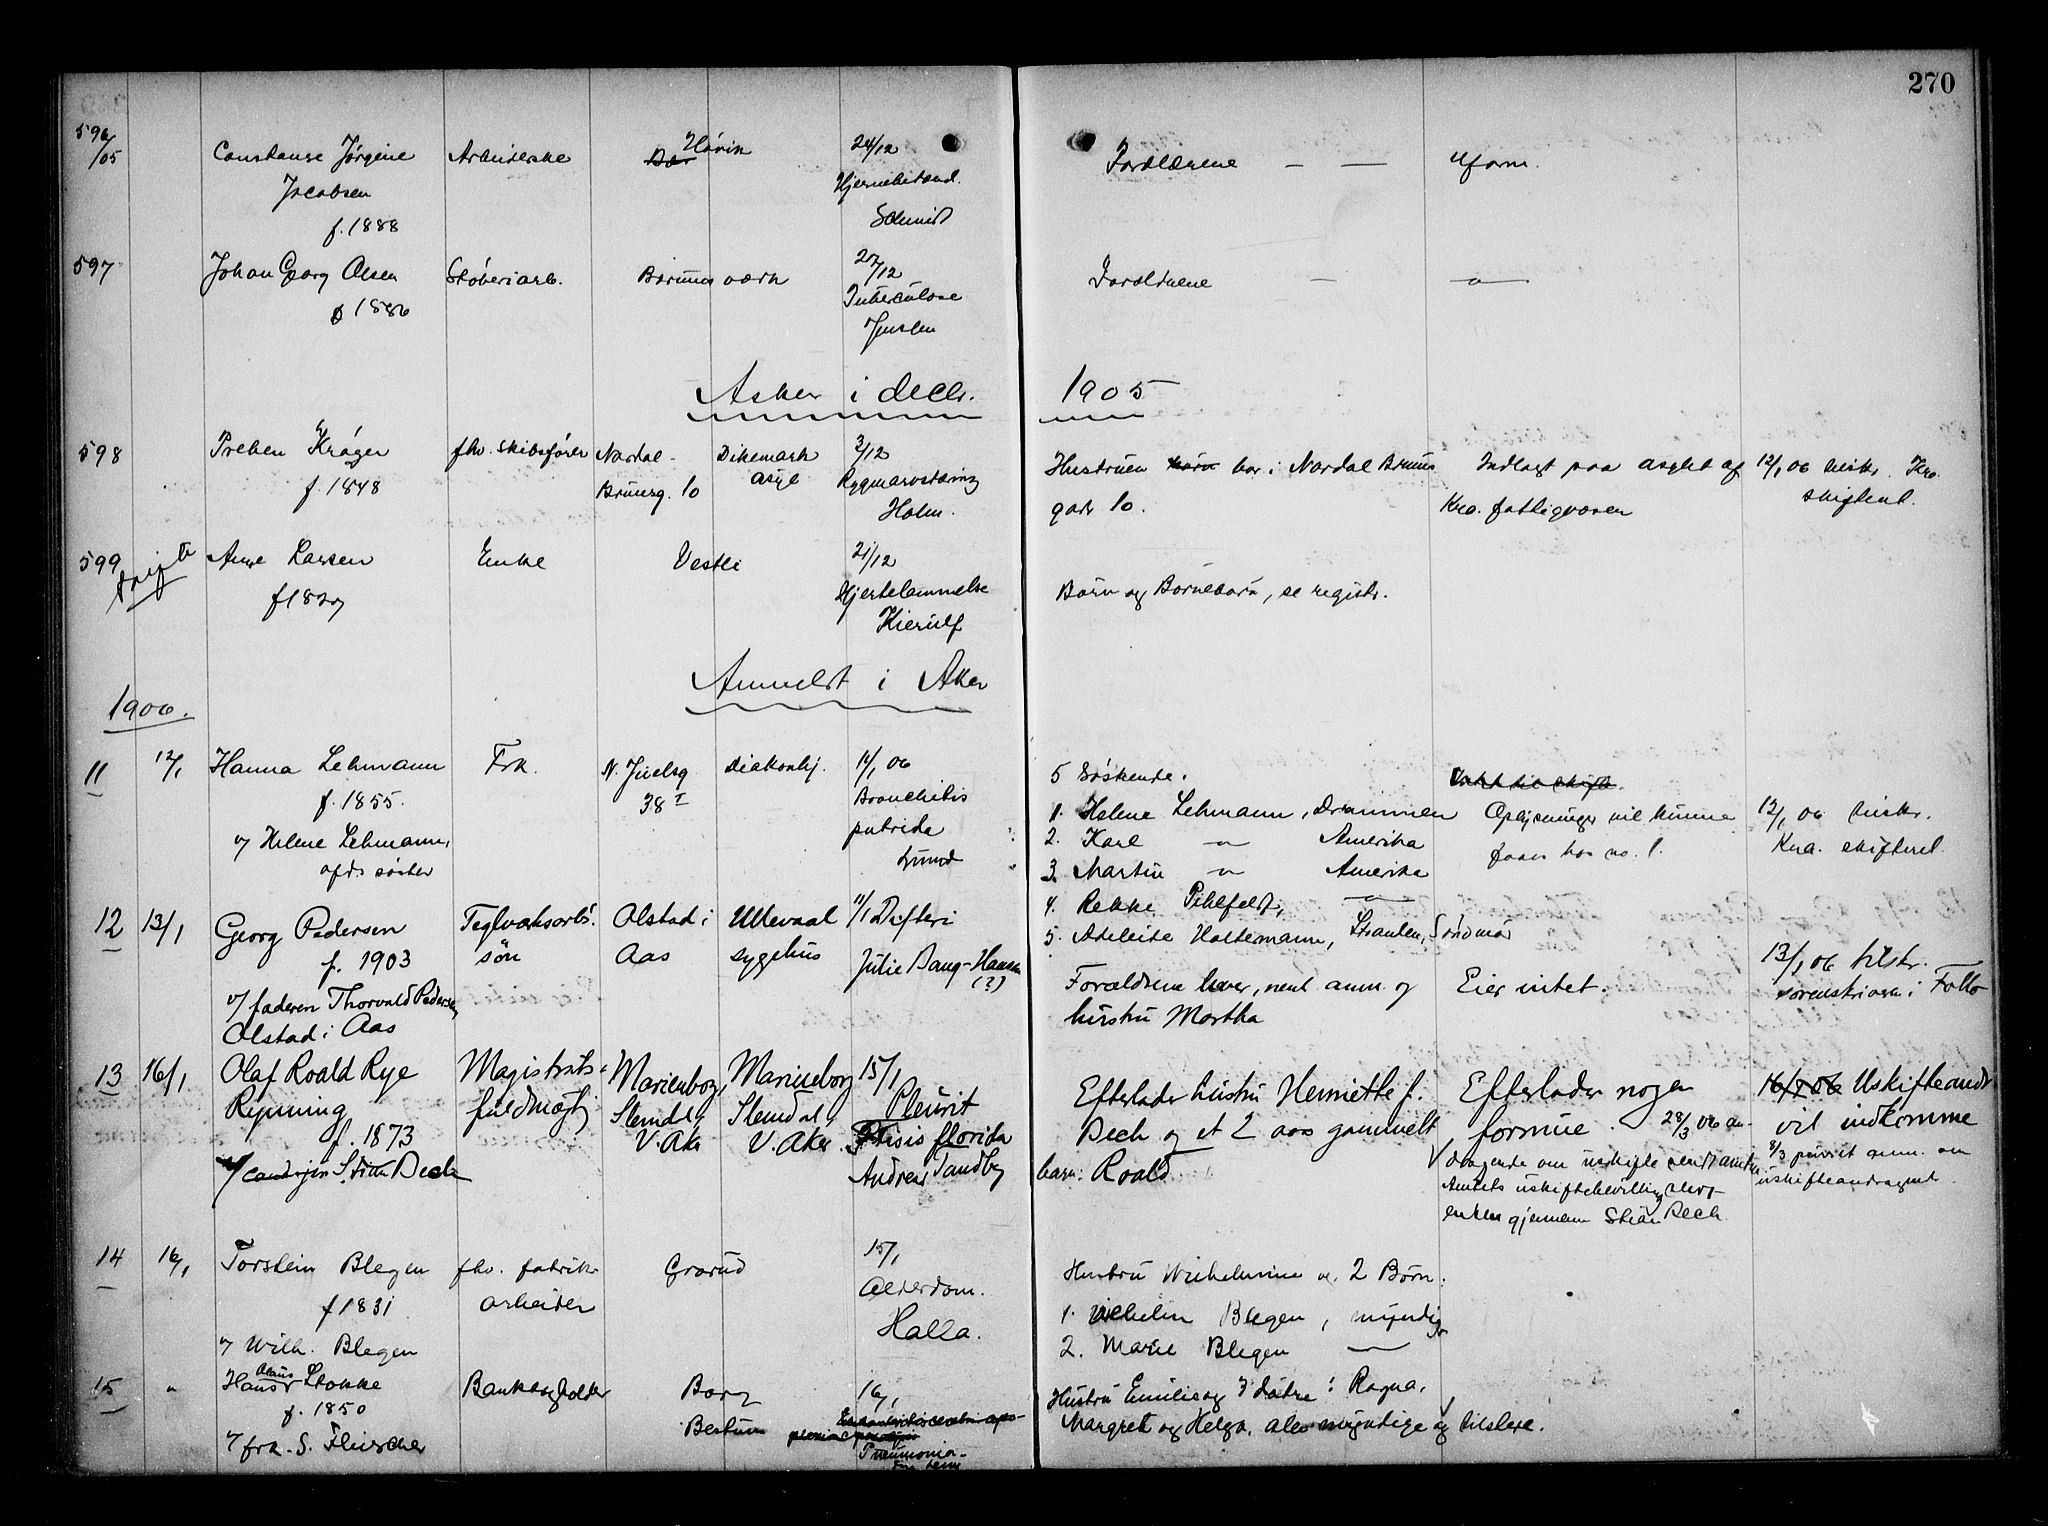 270
596/05 Constanse Jørgine Arbeiderske Høvik 24/12 Forældrene — — uform.
Jacobsen Hjernebetænd.
f. 1888 Schmidt
597 Johan Georg Olsen Støberiarb. Bærums værk 27/12 Forældrene — — " —
f 1886 Tuberculose
Jensen
Asker i decbr. 1905
598 Preben Krøger fhv. skibsfører Nordal Dikemark 3/12 Hustruen bor i Nordal Bruns Indlagt paa asylet af 12/1 06 tilskr. Kra.
f. 1848 Brunsg. 10 asyl Rygmarvstæring gade 10. Kra. fattigvæsen skifteret.
Holm.
599 Anne Larsen Enke Vestli 21/12
Hjertelammelse Børn og Børnebørn, se registr.
Kierulf
Anmeldt i Aker
1906.
11 12/1 Hanna Lehmann Frk. N. Juelsg Diakonhj. 11/1 06 5 Søskende.
f. 1855. 38 I Bronchitis 1. Helene Lehmann, Drammen Oplysninger vil kunne 12/1 06 tilskr.
v/ Helene Lehmann, putrida 2. Karl — " — Amerika faaes hos no. 1. Kra. skifteret
afds søster Lund 3. Martin — " — Amerika
4. Rekke Pihlfeldt, — " —
12 13/1 Georg Pedersen Teglværksarb. Olstad i Ullevaal 11/1 Difteri 5. Adeleide Holtemann, Stranden, Søndmør
f. 1903 søn Aas sygehus Julie Bang-Hansen (?) Forældrene lever, nemt anm. og Eier intet. 13/1 06 tilskr.
v/ faderen Thorvald Pedersen, hustru Martha sorenskriveren i Follo
Olstad i Aas
13 16/1 Olaf Roald Rye Magistrats- Marienborg, Marienborg 15/1 Efterlader hustru Henriette f. Efterlader nogen 16/1 06 Uskifteandr
Rynning fuldmægtig Slemdal, Slemdal, Pleurit Dech og et 2 aar gammelt formue. 28/3 06 an- vil indkomme
f. 1873 V. Aker V. Aker Ftisis florida barn: Roald. dragende om uskifte sendt amtm. 8/3 purret anm. om
v/ Dech Andreas Tandberg Amtets uskiftebevilling uskifteandragend.
enken gjennem Dech
14 16/1 Torstein Blegen fhv. fabrik- Grorud 15/1 Hustru Wilhelmine og 2 Børn.
f 1831 arbeider Alderdom. 1. Wilhelm Blegen, myndig
v/ Wilh. Blegen Halla. 2. Marie Blegen — " —
15 " Hans Claus Stokke Bankbogholder Borg 16/1 Hustru Emilie og 3 døtre: Ragna,
f. 1850 Bestum Margrete og Helga, alle myndige og tilstede.
v/ frk. S. Fleischer Pneumonia